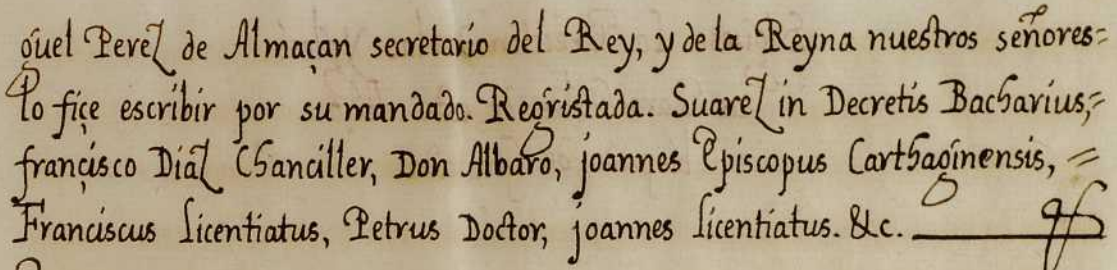 guel Perez de Almaçan secretario del Rey, y de la Reyna nuestros señores=
lo fiçe escribir por su mandado. Regristada. Suarez in Decretis Bacharius,=
françisco Diaz Chanciller, Don Albaro, joannes Episcopus Carthaginensis, =
Franciscus licentiatus, Petrus Doctor, joannes licentiatus. &c.